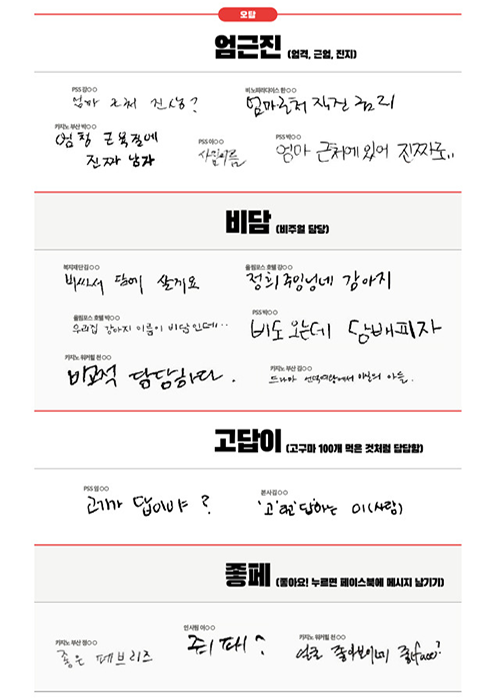 오답
엄근진 (엄격, 근엄, 진지)
PSS 강○○
엄마 근처 진상?
비 노파라다이스 한○○
엄마근처 직진 금지
카지노 부산 박○○
엄청 근육질에
진짜 남자
PSS 이○○
사람이름
PSS 박○○
엄마 근처에 있어 진짜로..
비담 (비주얼 담당)
복지재단 김○○
비싸서 담에 살게요
올림포스 호텔 강○○
정희주임님네 강아지
올림포스 호텔 박○○
우리집 강아지 이름이 비담인데...
PSS 박○○
비도 오는데 담배피자
카지노 워커힐 천○○
비교적 담담하다.
카지노 부산 김○○
드라마 선덕여왕에서 미실의 아들.
고답이 (고구마 100개 먹은 것처럼 답답함)
PSS 엄○○
고기가 답이야?
본사 김○○
'고'런 '답'하는 이(사람)
좋페 (좋아요! 누르면 페이스북에 메시지 남기기)
카지노 부산 정○○
좋은 페브리즈
인사팀 이○○
쥐패?
카지노 워커힐 천○○
얼굴 좋아보이네 좋face?